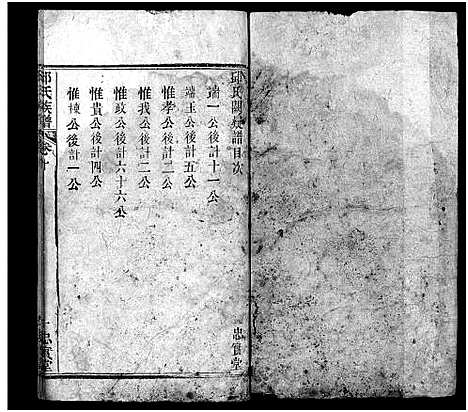 邱氏闔族譜目次
端一公後計十一公
端玉公後計五公
惟孝公後計二公
惟我公後計二公
惟政公後計六十六公
惟貴公後計四公
惟棟公後計一公
忠實堂
邱氏族譜 卷首
一 忠實堂